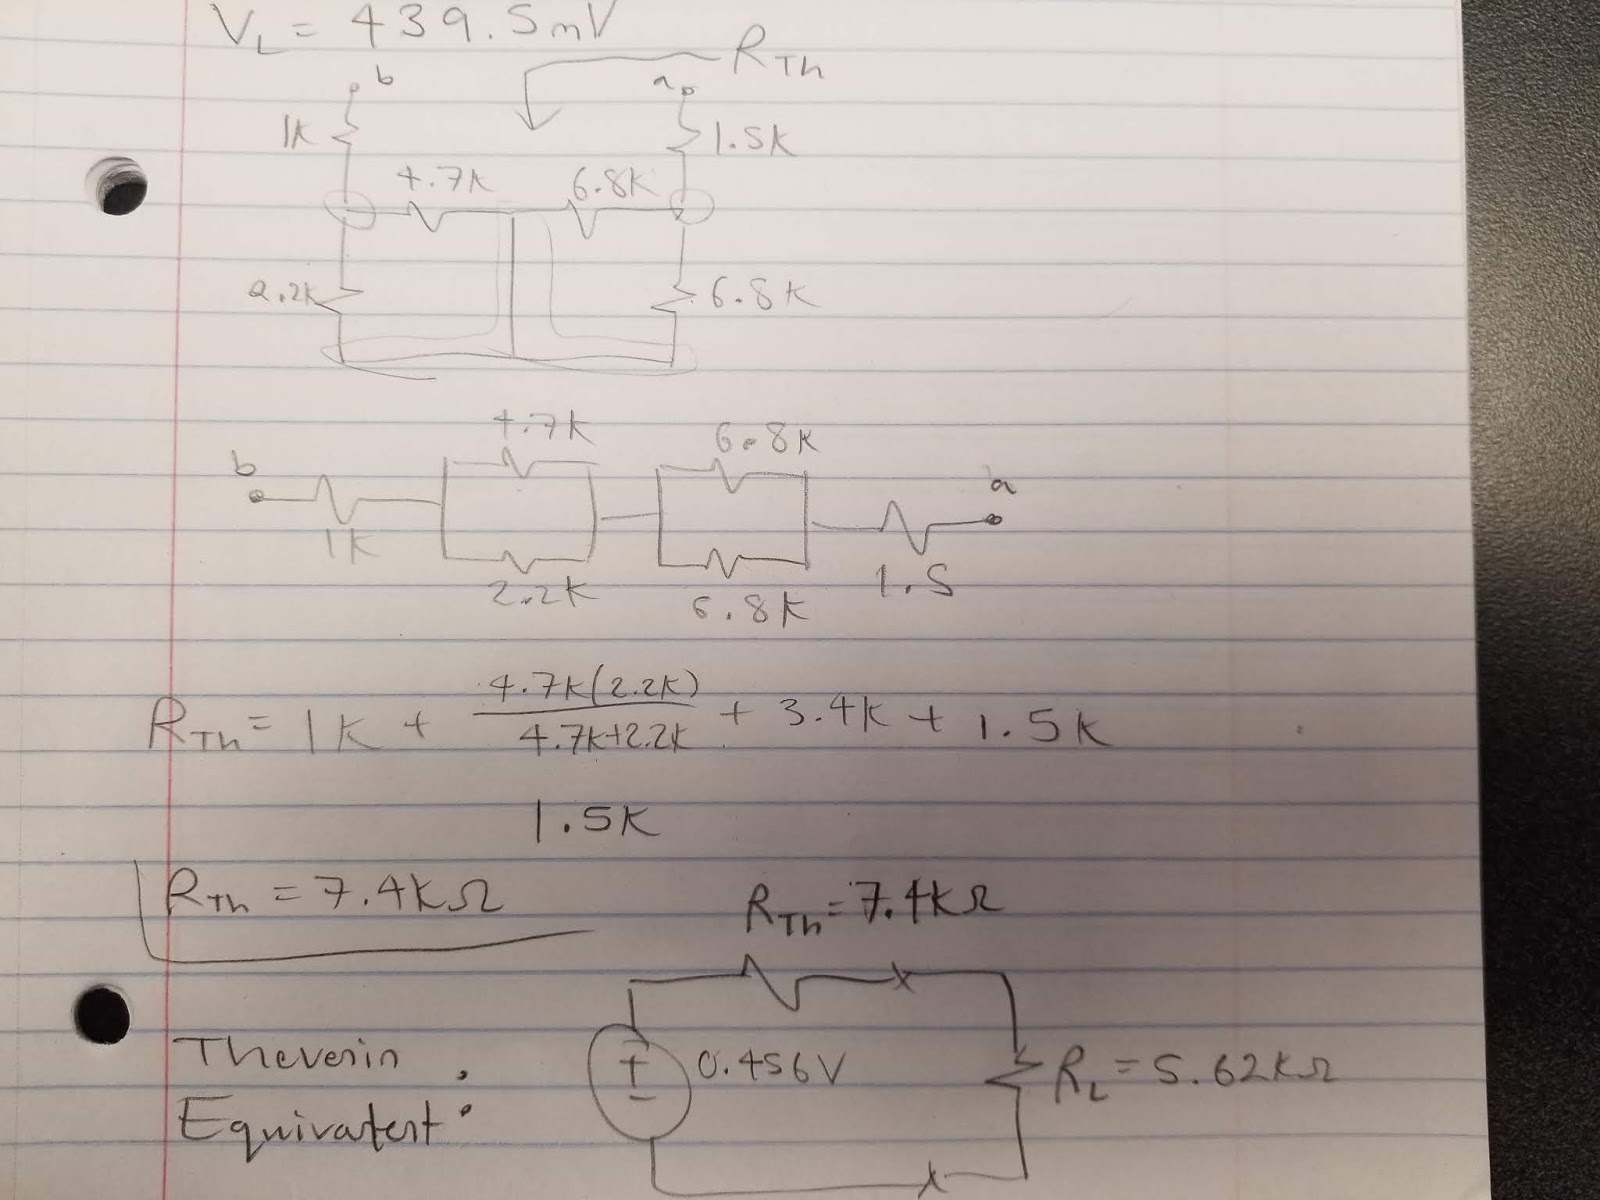 V_L = 439.5mV
R_Th
b
a
1K
1.5K
4.7K
6.8K
2.2K
6.8K
4.7K
6.8K
b
a
1K
2.2K
6.8K
1.5
R_Th = 1K + 4.7K(2.2K) / 4.7K+2.2K + 3.4K + 1.5K
1.5K
R_Th = 7.4KΩ
R_Th = 7.4KΩ
Thevenin
+
-
0.456V
R_L = 5.62KΩ
Equivalent :